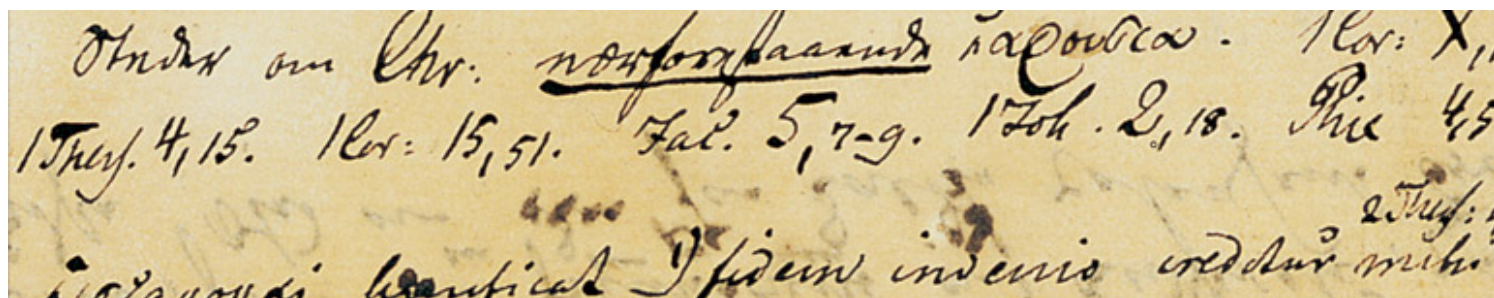 Steder om Chr: nærforestaaende παρουσια. 1 Cor: X,
1 Thess. 4,15. 1 Cor: 15,51. Jac. 5,7-9. 1 Joh. 2,18. Phil 4,5
2 Thess:
significat 1) fidem invenio creditur mihi